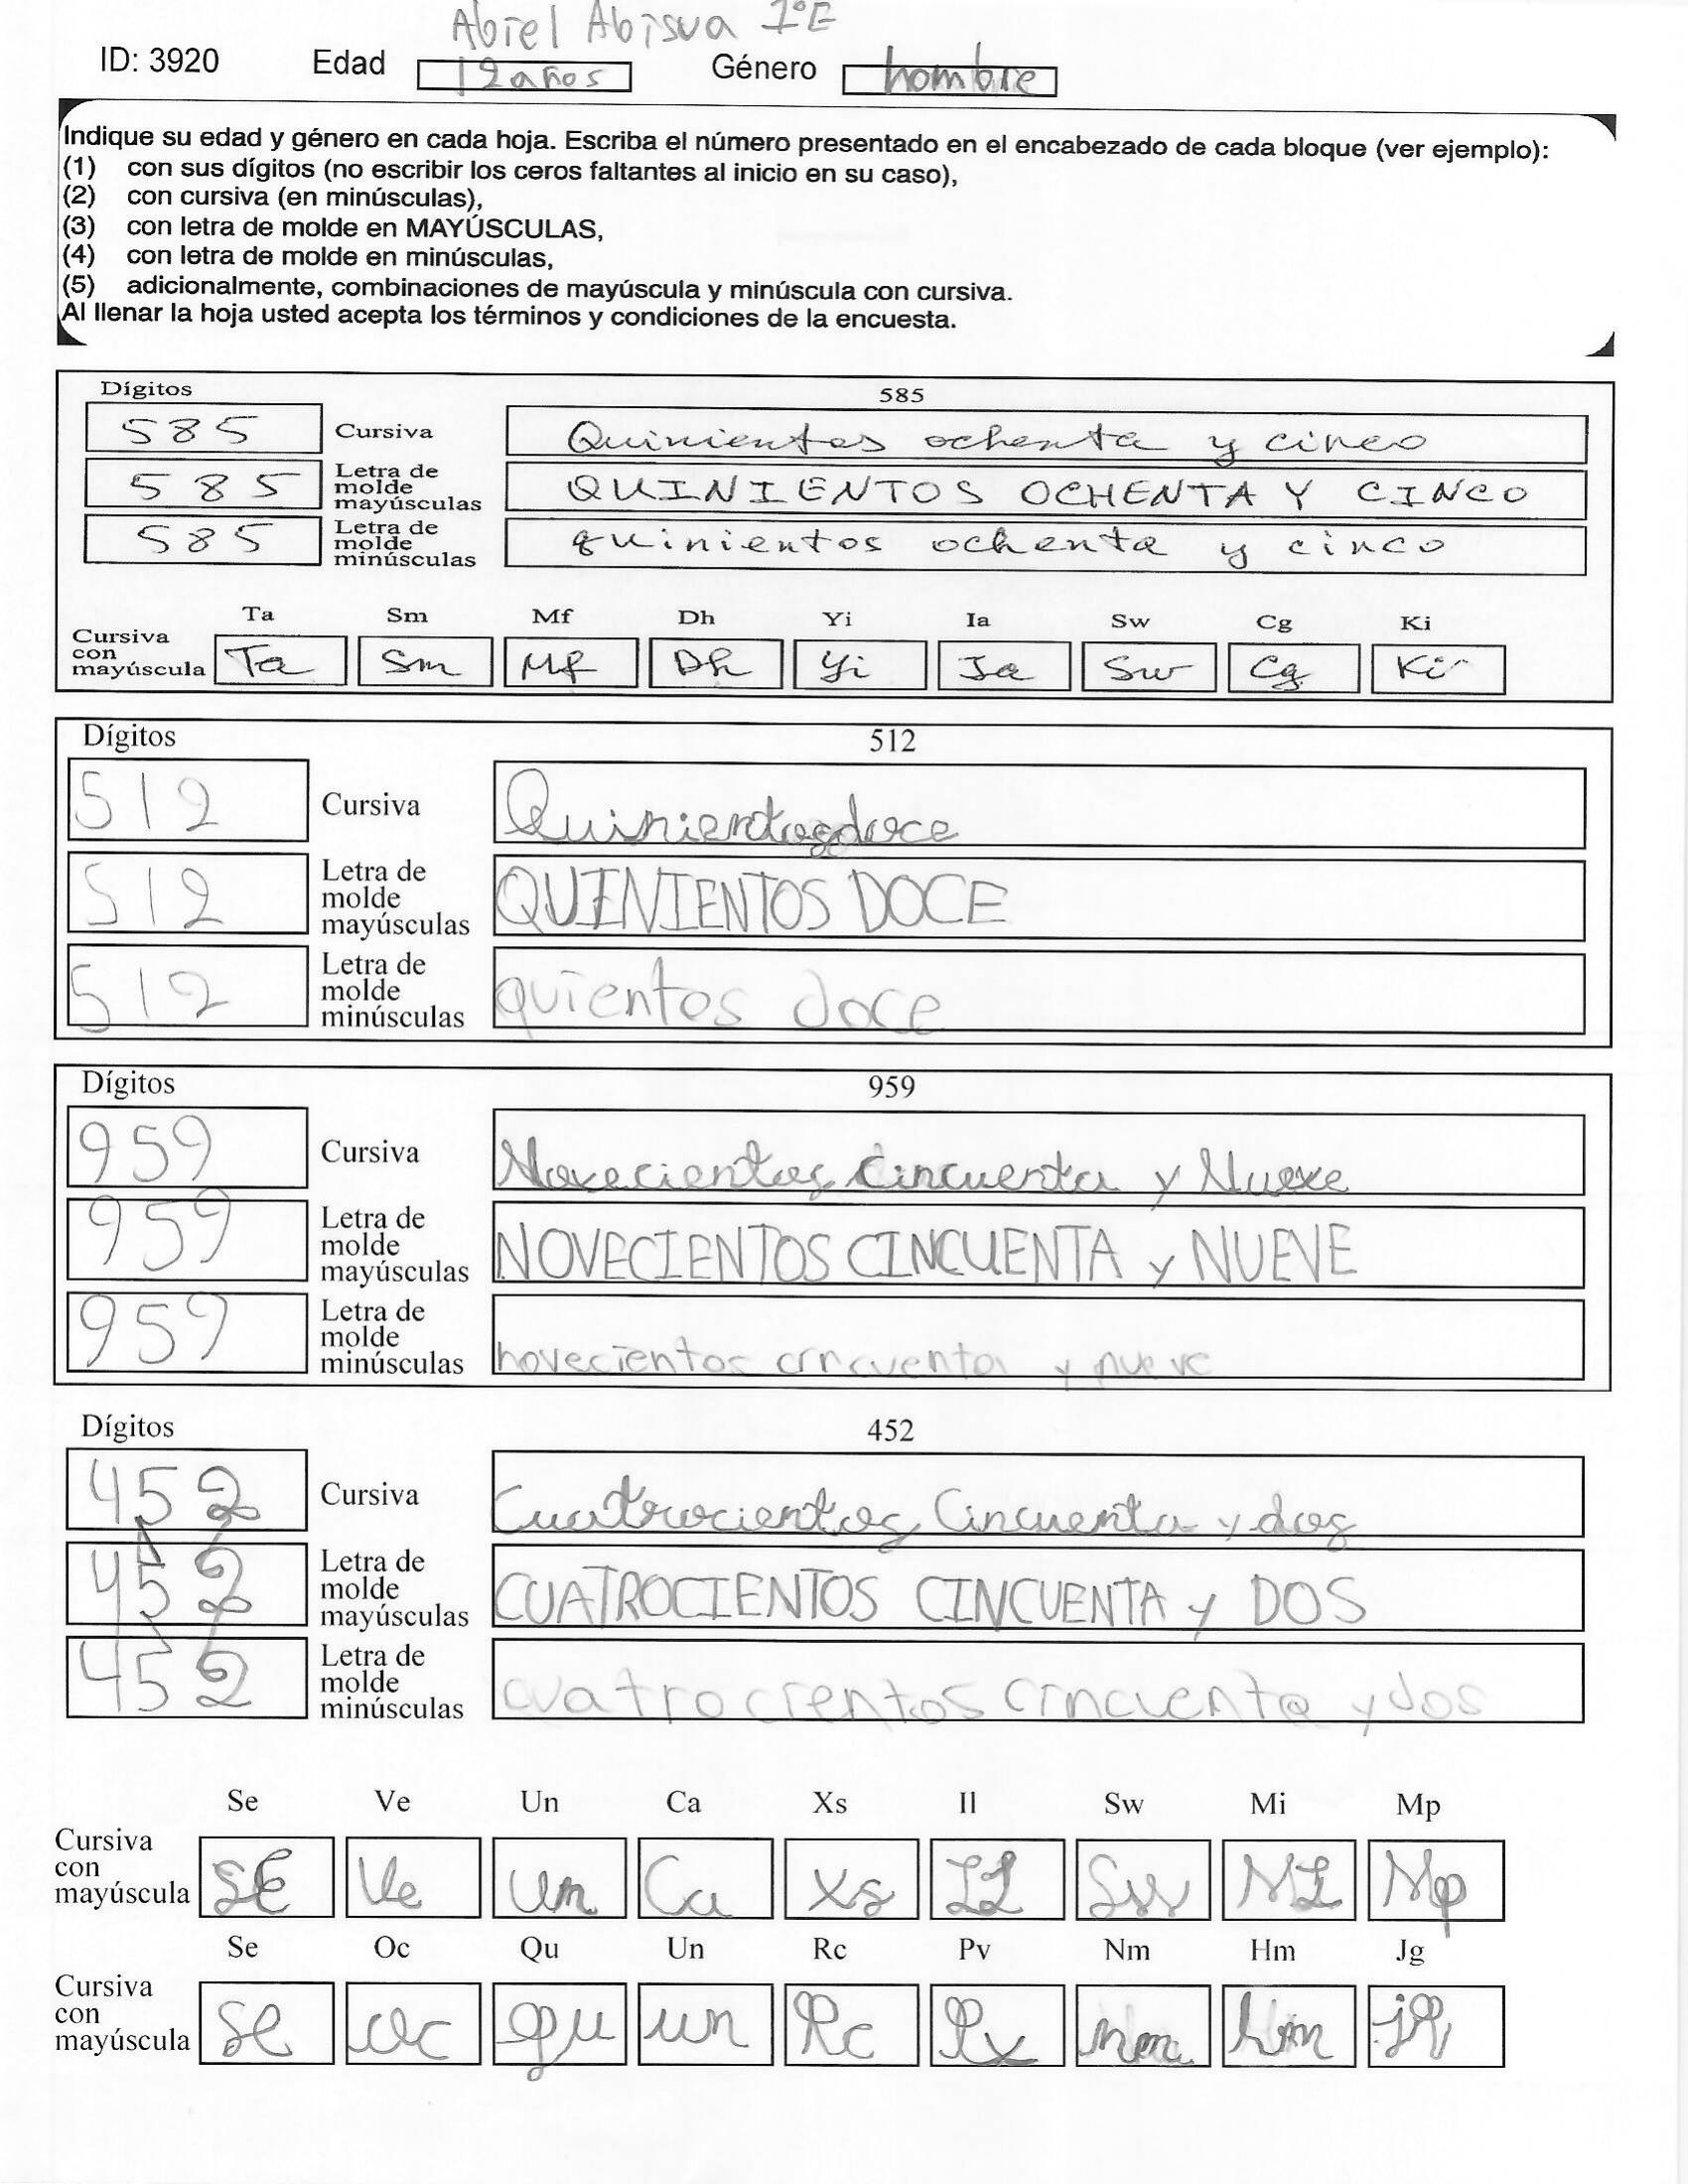 Abiel Abisua 1°E
ID: 3920 Edad 12 años Género hombre
Indique su edad y género en cada hoja. Escriba el número presentado en el encabezado de cada bloque (ver ejemplo):
(1) con sus dígitos (no escribir los ceros faltantes al inicio en su caso),
(2) con cursiva (en minúsculas),
(3) con letra de molde en MAYÚSCULAS,
(4) con letra de molde en minúsculas,
(5) adicionalmente, combinaciones de mayúscula y minúscula con cursiva.
Al llenar la hoja usted acepta los términos y condiciones de la encuesta.
Dígitos 585
585 Cursiva Quinientos ochenta y cinco
585 Letra de molde mayúsculas QUINIENTOS OCHENTA Y CINCO
585 Letra de molde minúsculas quinientos ochenta y cinco
Ta Sm Mf Dh Yi Ia Sw Cg Ki
Cursiva con mayúscula Ta Sm Mf Dh Yi Ia Sw Cg Ki
Dígitos 512
512 Cursiva Quinientos doce
512 Letra de molde mayúsculas QUINIENTOS DOCE
512 Letra de molde minúsculas quientos doce
Dígitos 959
959 Cursiva Novecientos Cincuenta y Nueve
959 Letra de molde mayúsculas NOVECIENTOS CINCUENTA y NUEVE
959 Letra de molde minúsculas novecientos cincuenta y nueve
Dígitos 452
452 Cursiva Cuatrocientos Cincuenta y dos
452 Letra de molde mayúsculas CUATROCIENTOS CINCUENTA y DOS
452 Letra de molde minúsculas cuatrocientos cincuenta y dos
Se Ve Un Ca Xs Il Sw Mi Mp
Cursiva con mayúscula SE Ve Un Ca Xs IL Sw MI Mp
Se Oc Qu Un Rc Pv Nm Hm Jg
Cursiva con mayúscula Se Oc qu un Rc Pv nm hm jg